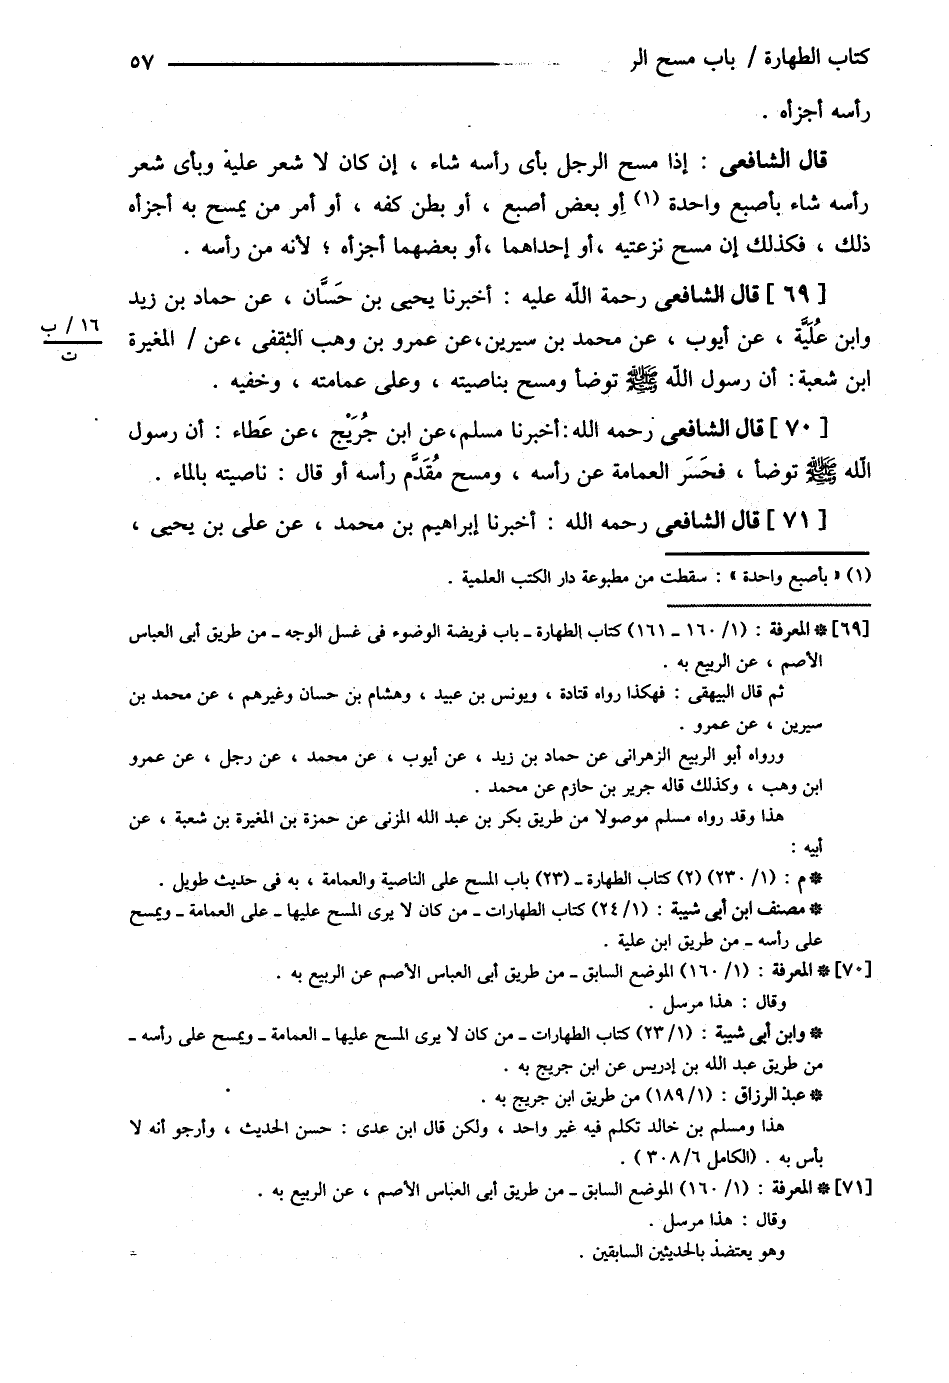 كتاب الطهارة / باب مسح الر ٥٧
رأسه أجزأه .
قال الشافعى : إذا مسح الرجل بأى رأسه شاء ، إن كان لا شعر عليه وبأى شعر
رأسه شاء بأصبع واحدة (١) أو بعض أصبع ، أو بطن كفه ، أو أمر من يمسح به أجزأه
ذلك ، فكذلك إن مسح نزعتيه ،أو إحداهما ،أو بعضهما أجزأه ؛ لأنه من رأسه .
[ ٦٩ ] قال الشافعى رحمة الله عليه : أخبرنا يحيى بن حَسَّان ، عن حماد بن زيد
وابن عُلَيَّة ، عن أيوب ، عن محمد بن سيرين،عن عمرو بن وهب الثقفى ،عن / المغيرة
١٦ / ب
ت
ابن شعبة: أن رسول الله ﷺ توضأ ومسح بناصيته ، وعلى عمامته ، وخفيه .
[ ٧٠ ] قال الشافعى رحمه الله:أخبرنا مسلم،عن ابن جُرَيْج ،عن عَطاء : أن رسول
الله ﷺ توضأ ، فحَسَر العمامة عن رأسه ، ومسح مُقَدَّم رأسه أو قال : ناصيته بالماء .
[ ٧١ ] قال الشافعى رحمه الله : أخبرنا إبراهيم بن محمد ، عن على بن يحيى ،
(١) « بأصبع واحدة » : سقطت من مطبوعة دار الكتب العلمية .
[٦٩] * المعرفة : (١/ ١٦٠ ـ ١٦١) كتاب الطهارة ـ باب فريضة الوضوء فى غسل الوجه ـ من طريق أبى العباس
الأصم ، عن الربيع به .
ثم قال البيهقى : فهكذا رواه قتادة ، ويونس بن عبيد ، وهشام بن حسان وغيرهم ، عن محمد بن
سيرين ، عن عمرو .
ورواه أبو الربيع الزهرانى عن حماد بن زيد ، عن أيوب ، عن محمد ، عن رجل ، عن عمرو
ابن وهب ، وكذلك قاله جرير بن حازم عن محمد .
هذا وقد رواه مسلم موصولا من طريق بكر بن عبد الله المزنى عن حمزة بن المغيرة بن شعبة ، عن
أبيه :
* م : (١/ ٢٣٠) (٢) كتاب الطهارة ـ (٢٣) باب المسح على الناصية والعمامة ، به فى حديث طويل .
* مصنف ابن أبى شيبة : (١/ ٢٤) كتاب الطهارات ـ من كان لا يرى المسح عليها ـ على العمامة ـ ويمسح
على رأسه ـ من طريق ابن علية .
[٧٠] * المعرفة : (١/ ١٦٠) الموضع السابق ـ من طريق أبى العباس الأصم عن الربيع به .
وقال : هذا مرسل .
* وابن أبى شيبة : (١/ ٢٣) كتاب الطهارات ـ من كان لا يرى المسح عليها ـ العمامة ـ ويمسح على رأسه ـ
من طريق عبد الله بن إدريس عن ابن جريج به .
* عبد الرزاق : (١/ ١٨٩) من طريق ابن جريج به .
هذا ومسلم بن خالد تكلم فيه غير واحد ، ولكن قال ابن عدى : حسن الحديث ، وأرجو أنه لا
بأس به . (الكامل ٦/ ٣٠٨ ) .
[٧١] * المعرفة : (١/ ١٦٠) الموضع السابق ـ من طريق أبى العباس الأصم ، عن الربيع به .
وقال : هذا مرسل .
وهو يعتضد بالحديثين السابقين . =